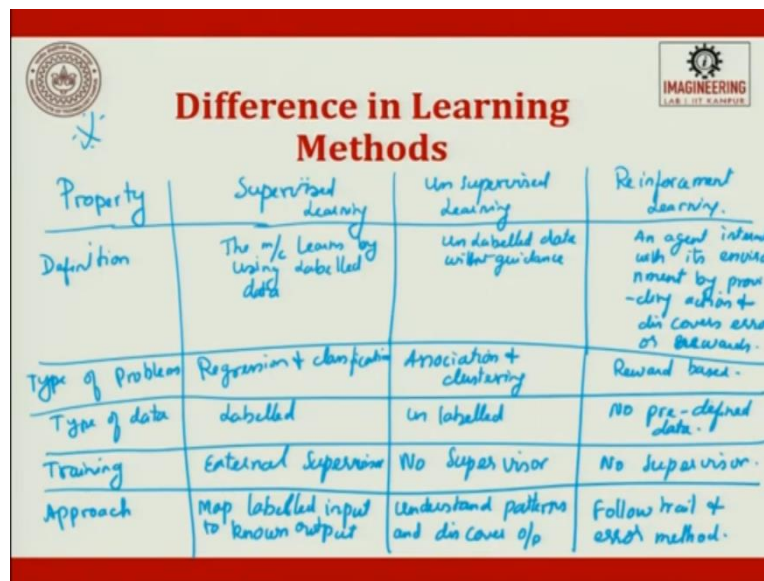 IMAGINEERING
LAB | IIT KANPUR
Difference in Learning
Methods
Property
Supervised
Learning
Unsupervised
Learning
Reinforcement
Learning.
Definition
The m/c learns by
using labelled
data
Unlabelled data
without guidance
An agent
with its
nment by
-ding action &
discovers
or rewards.
Type of Problem
Regression & classification
Association &
clustering
Reward based.
Type of data
Labelled
Un labelled
No pre-defined
data.
Training
External Supervisor
No Supervisor
No Supervisor.
Approach
Map labelled input
to known output
Understand patterns
and discover o/p
Follow trail &
error method.